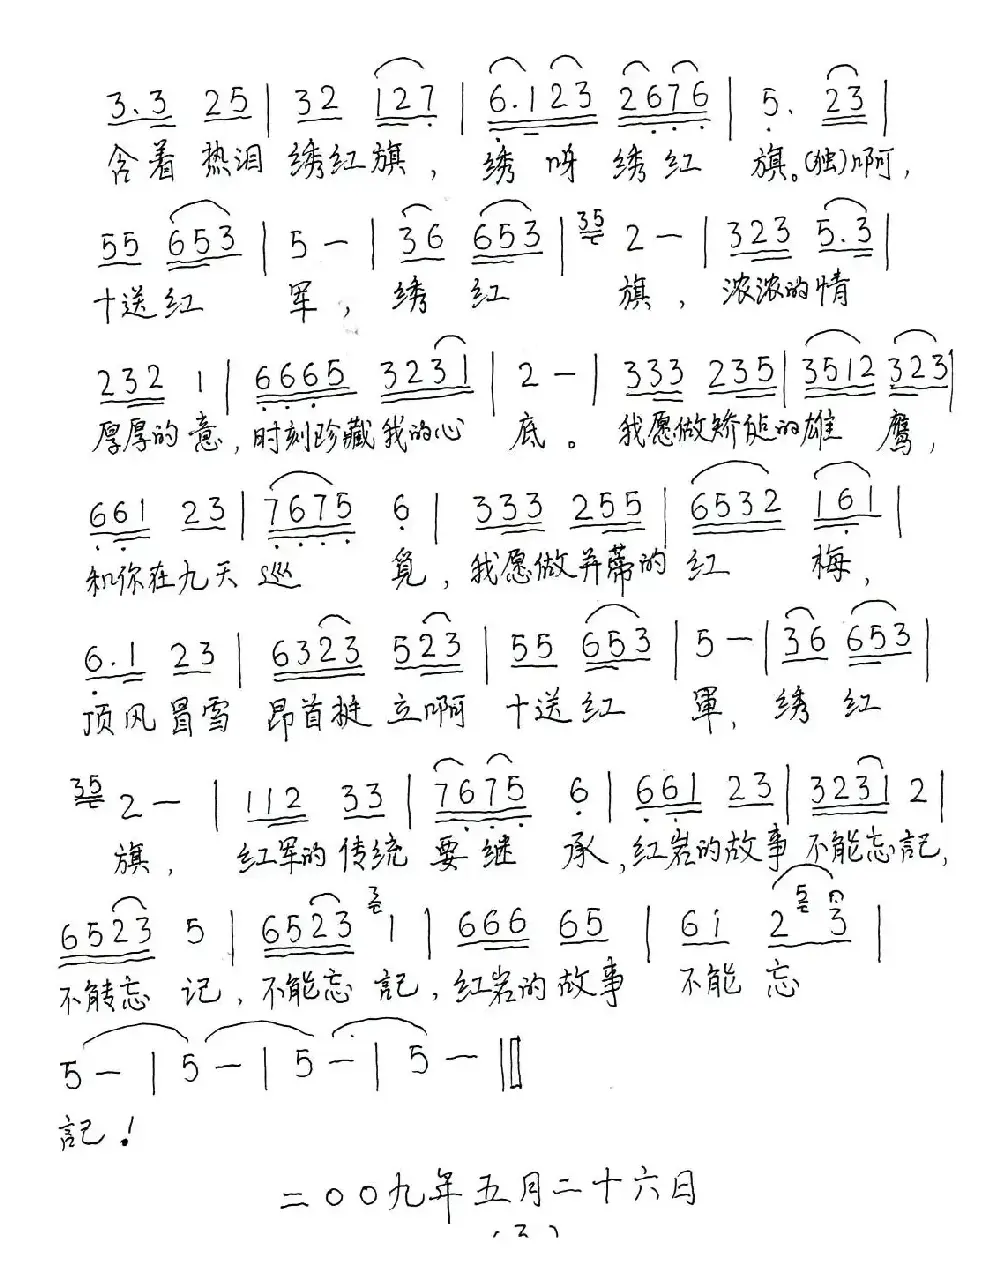 3.3 25 | 32 127 | 6.123 2676 | 5. 23 |
含着 热泪 绣红旗， 绣 呀 绣 红 旗。(独)啊，
55 653 | 5 — | 36 653 | 35 2 — | 323 5.3 |
十送红 军， 绣 红 旗， 浓浓的情
232 1 | 6665 3231 | 2 — | 333 235 | 3512 323 |
厚厚的意，时刻珍藏我的心 底。 我愿做矫的雄 鹰，
661 23 | 7675 6 | 333 255 | 6532 161 |
和你在九天 巡 觅，我愿做并蒂的 红 梅，
6.1 23 | 6323 523 | 55 653 | 5 — | 36 653 |
顶风冒雪 昂首挺 立啊 十送红 軍， 绣 红
35 2 — | 112 33 | 7675 6 | 661 23 | 3231 2 |
旗， 红军的传统 要 继 承，红岩的故事 不能忘記，
6523 5 | 6523 2 1 | 666 65 | 61 2 5 3 |
不能忘 记，不能忘 記，红岩的故事 不能 忘
5 — | 5 — | 5 — | 5 — ‖
記！
二〇〇九年五月二十六日
(3)